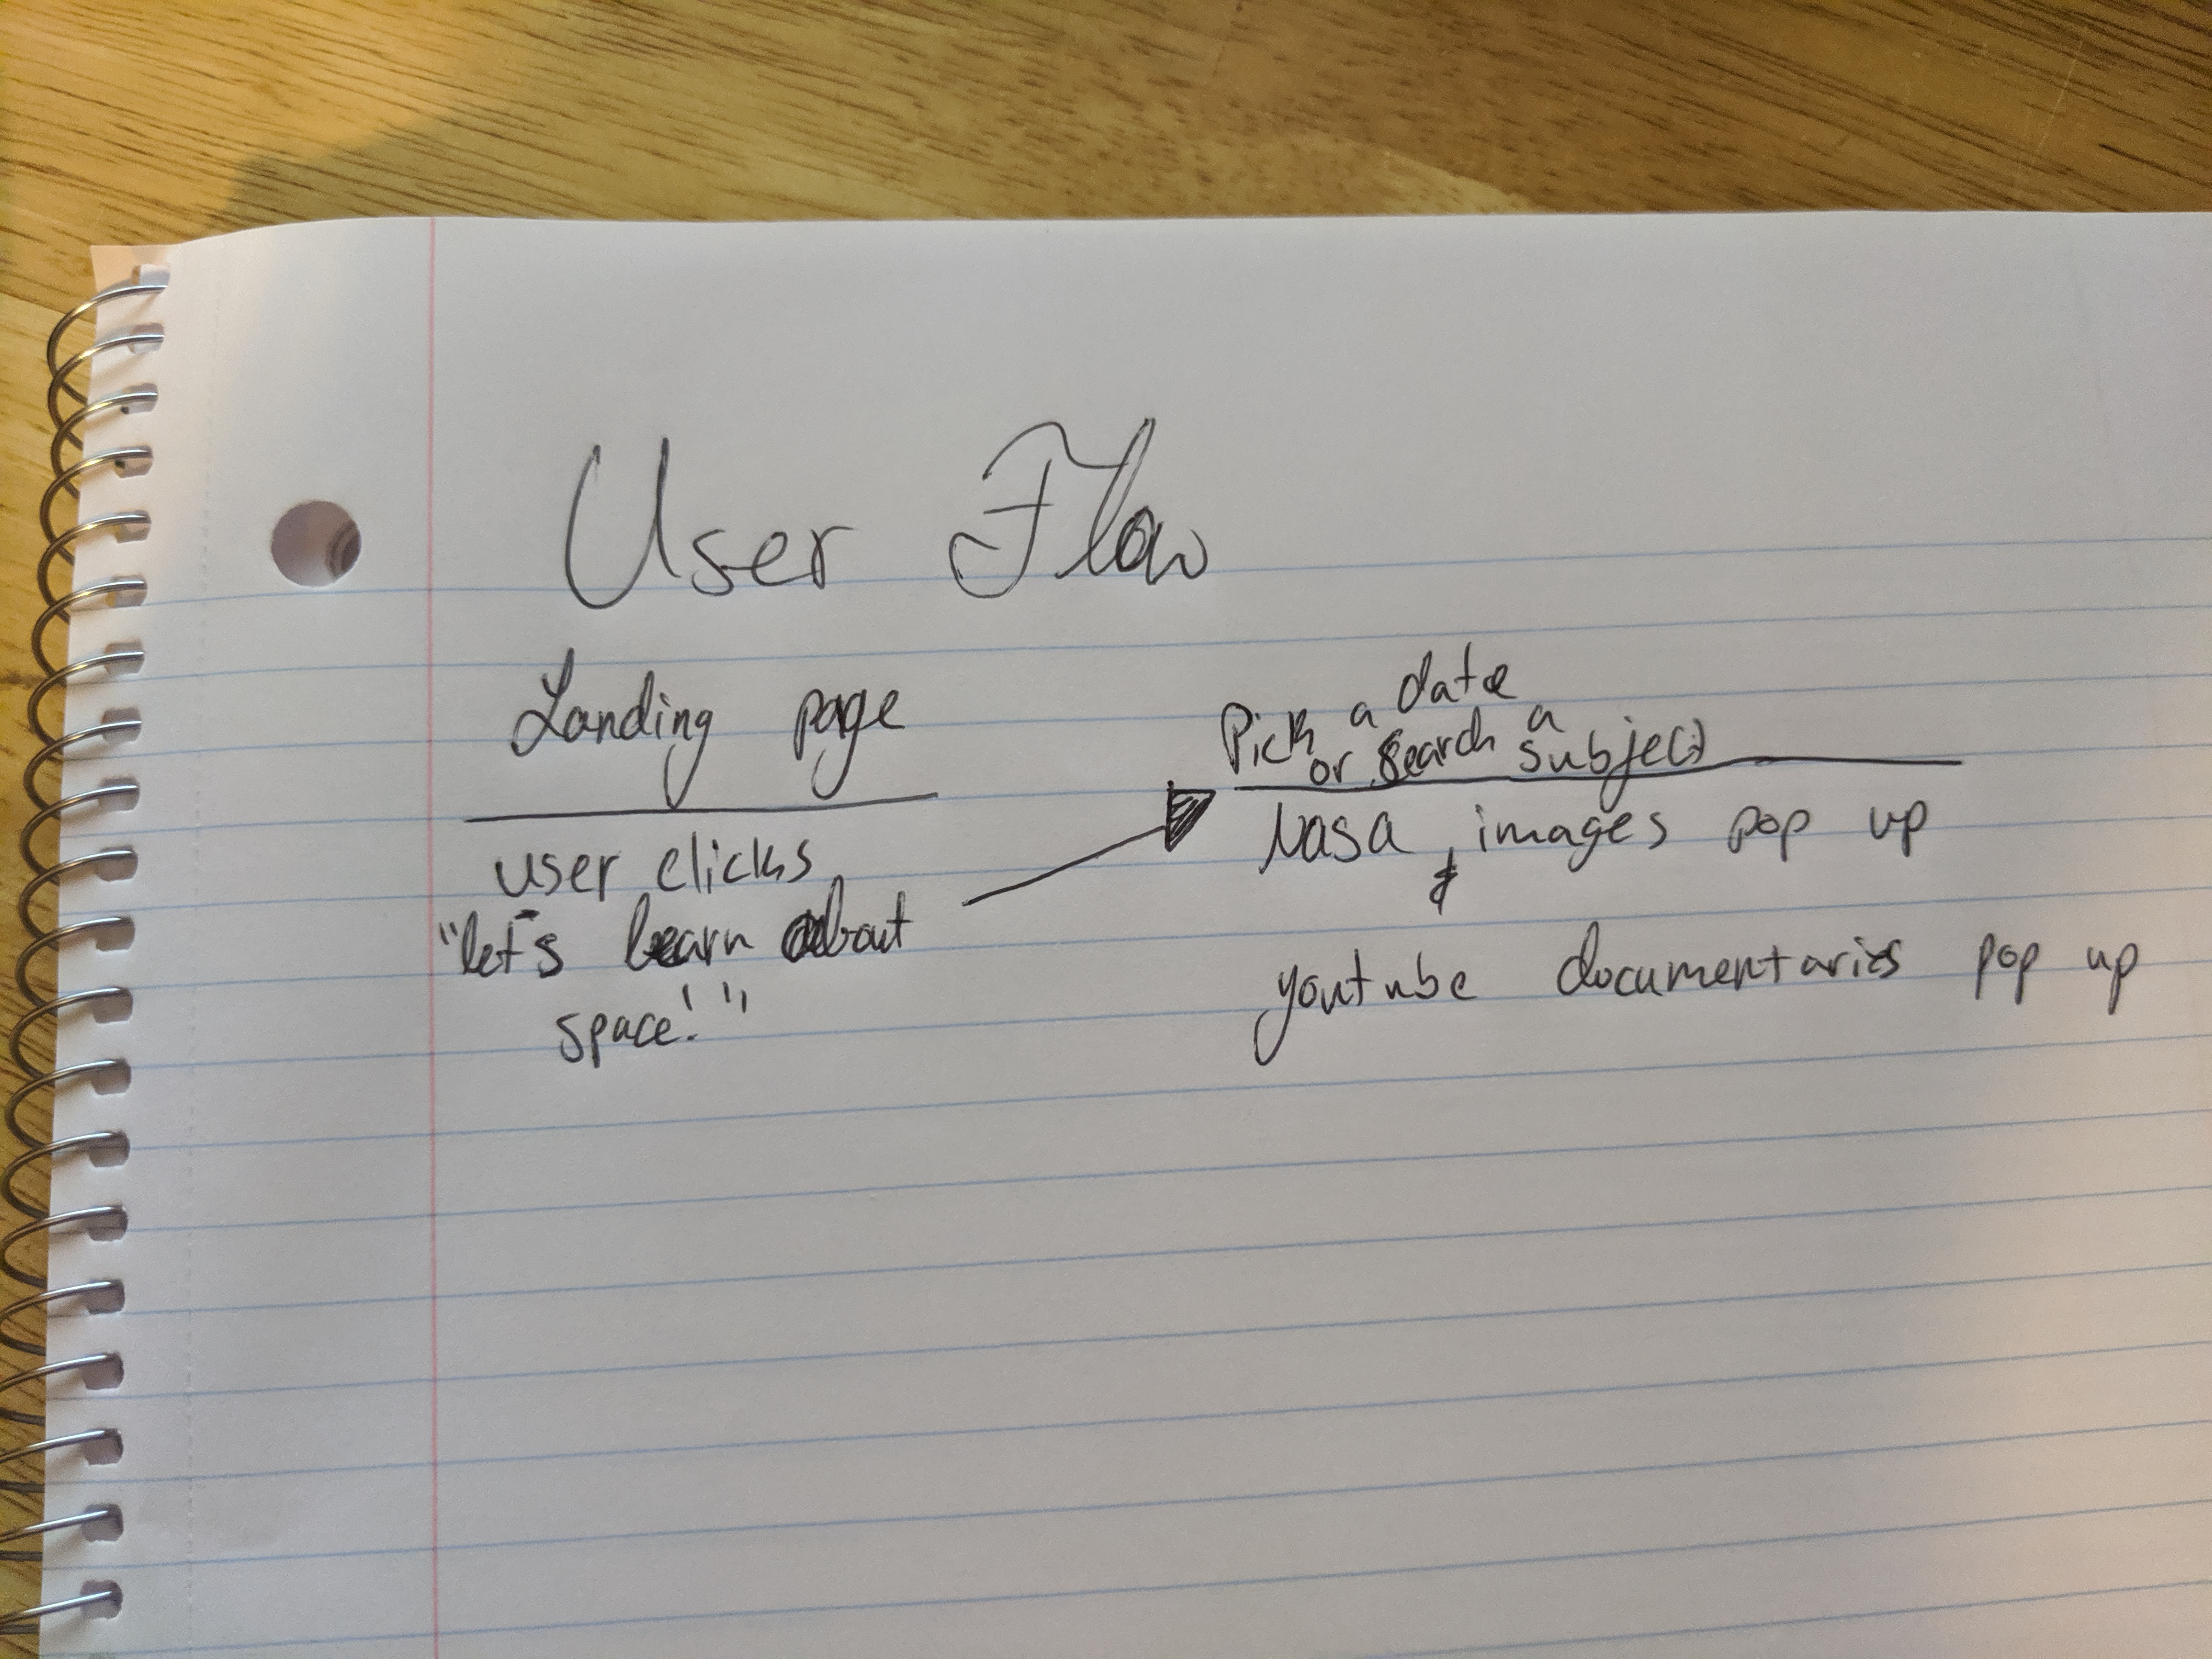 User Flow
Landing page
user clicks
"let's learn about
space!"
Pick a date
or search a subject
Nasa images pop up
&
youtube documentaries pop up